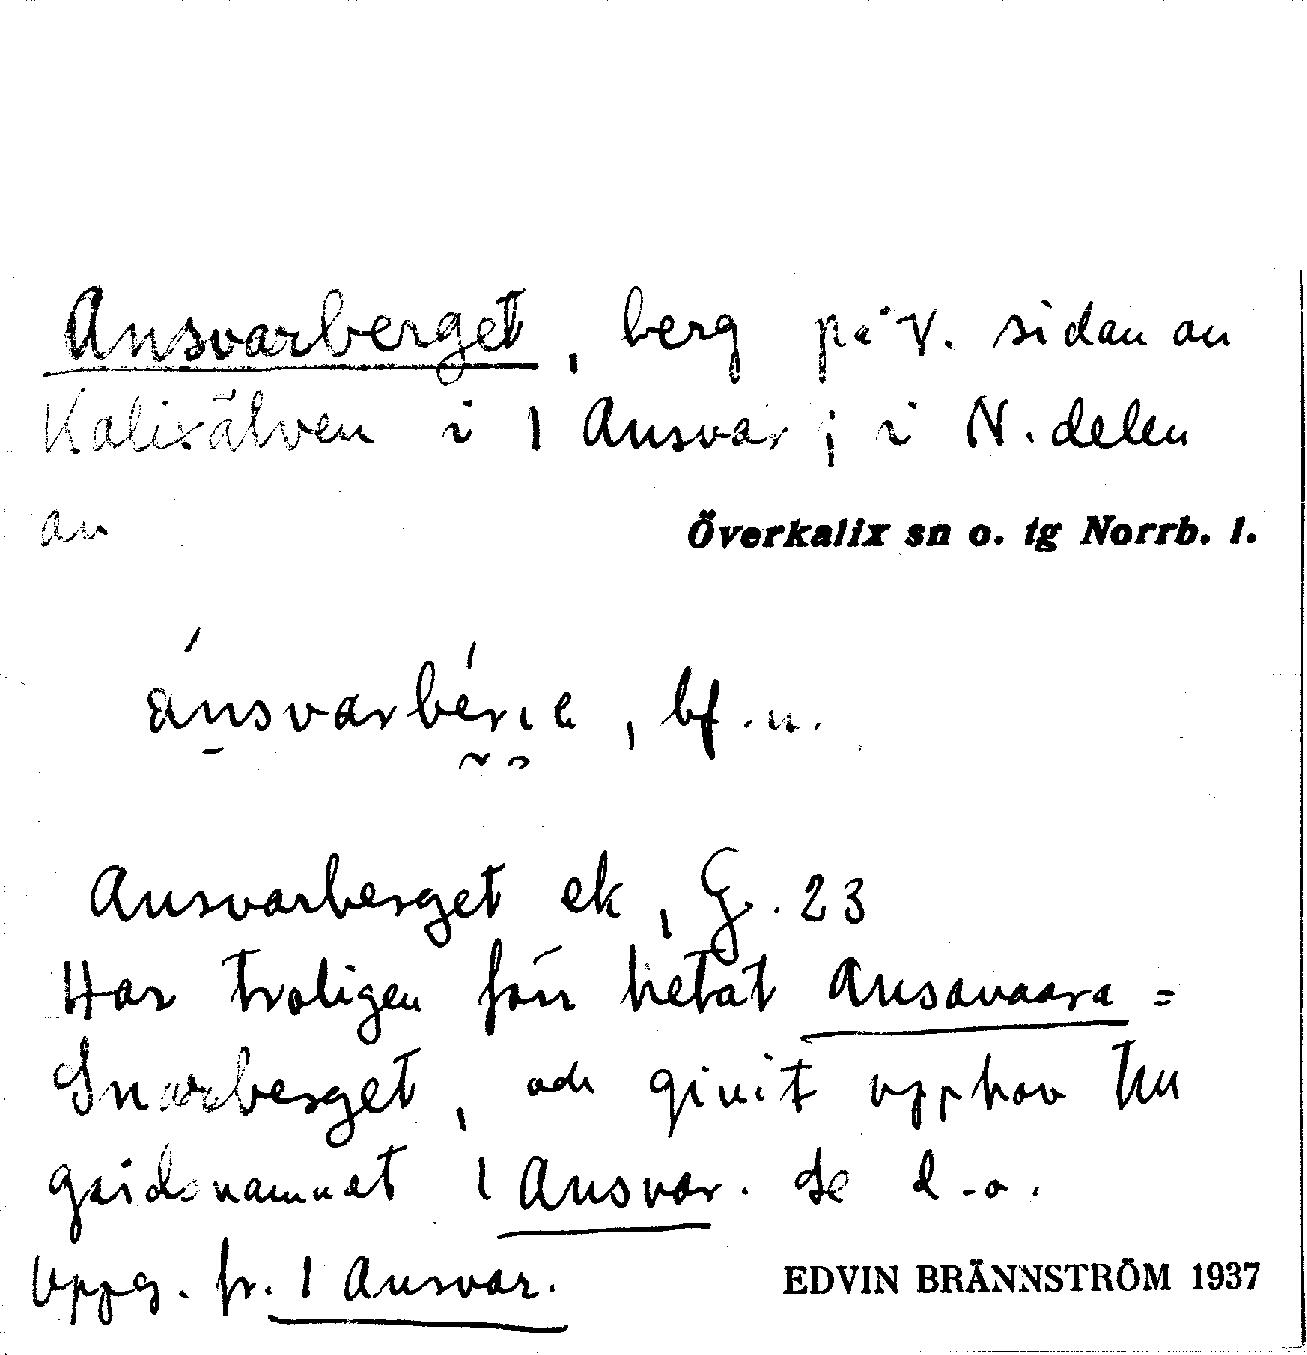 Ansvarberget, berg på V. sidan av
Kalixälven i 1 Ansvar; i N. delen
av Överkalix sn o. tg Norrb. l.
ánsvarbérıe, bf. n.
Ansvarberget ek, G. 23
Har troligen förr hetat Ansavaara =
Snarberget, och givit upphov till
gårdsnamnet 1 Ansvar. Se d. o.
Uppg. fr. 1 Ansvar. EDVIN BRÄNNSTRÖM 1937